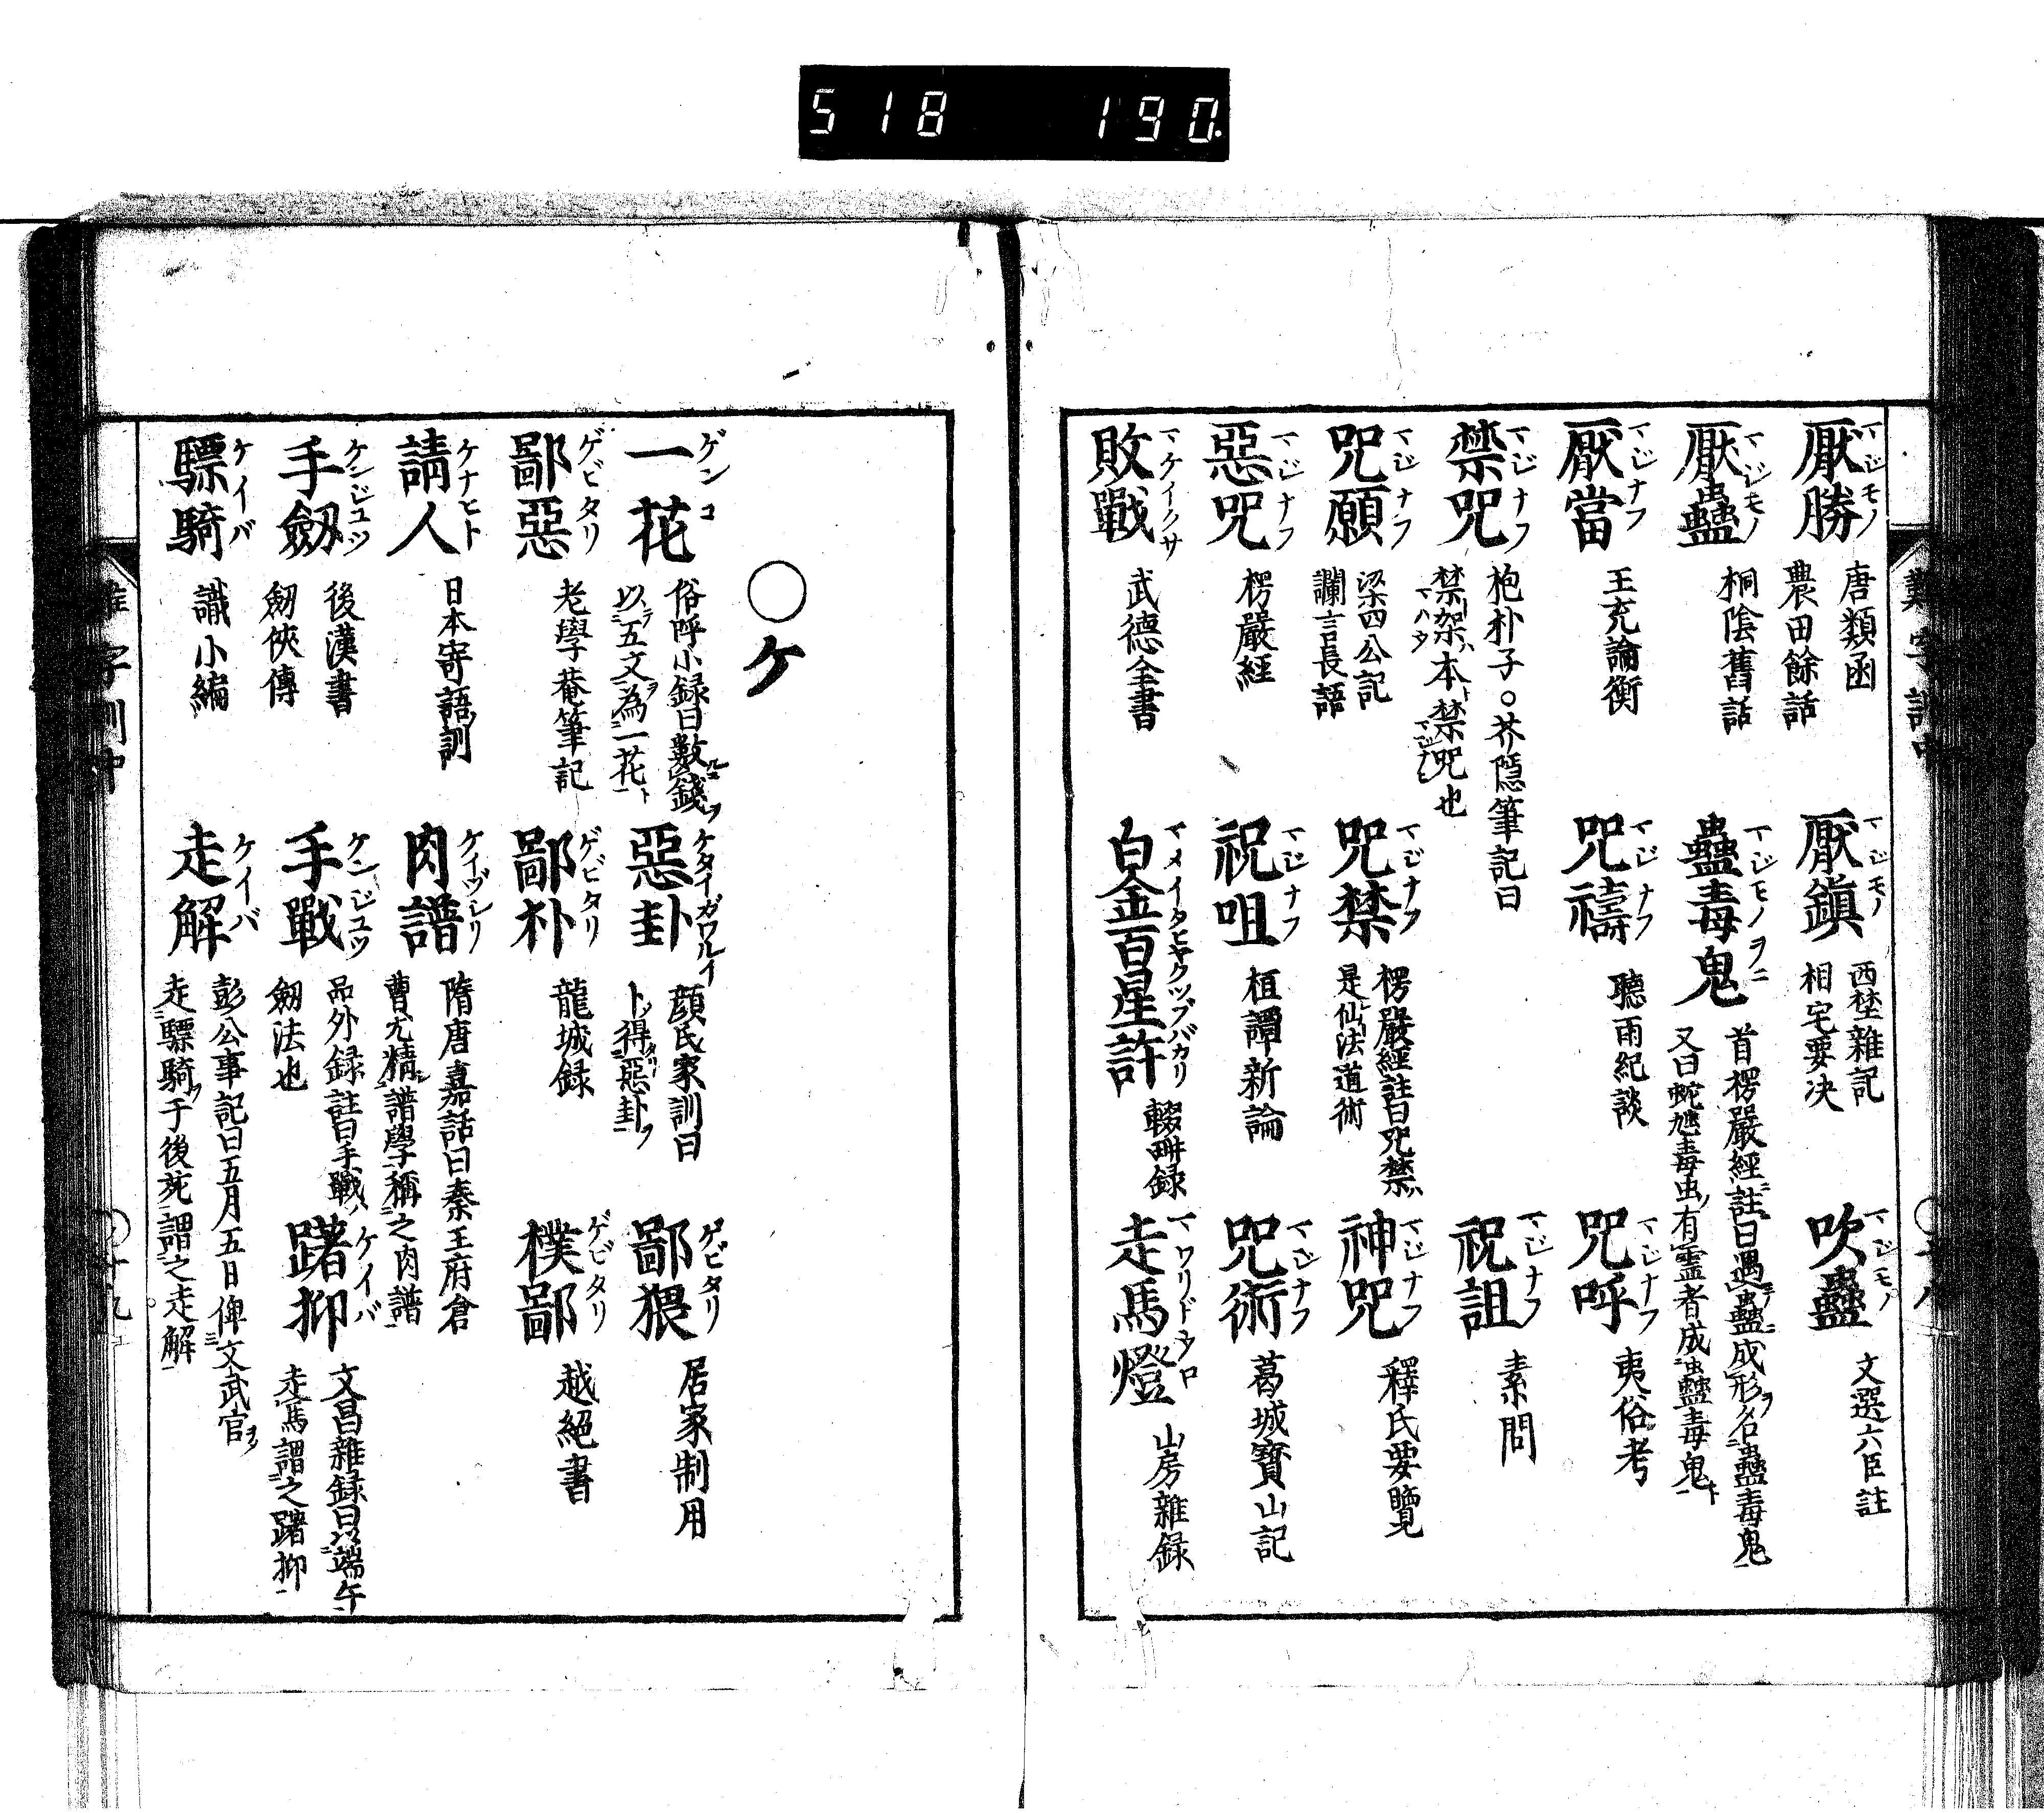 518 190.
厭勝 マジモノ 唐類函 農田餘話
厭鎮 マジモノ 西埜雜記 相宅要决
吹蠱 マジモノ 文選六臣註
厭蠱 マジモノ 桐陰舊話
蠱毒鬼 マジモノヲニ 首楞嚴經註曰遇蠱成形名蠱毒鬼 又曰蛇虺毒虫有霊者成蠱毒鬼
厭當 マジナフ 王充論衡
咒禱 マジナフ 聽雨紀談
咒呼 マジナフ 夷俗考
禁咒 マジナフ 枹朴子○芥隠筆記曰 禁架本禁咒也
祝詛 マジナフ 素問
咒願 マジナフ 梁四公記 讕言長語
咒禁 マジナフ 楞嚴經註曰咒禁 是仙法道術
神咒 マジナフ 釋氏要覽
惡咒 マジナフ 楞嚴經
祝咀 マジナフ 桓譚新論
咒術 マジナフ 葛城寳山記
敗戰 マケイクサ 武德全書
白金百星許 マメイタヒヤクツブバカリ 輟畊録
走馬燈 マワリドウロ 山房雜録
○ケ
一花 ゲンコ 俗呼小録曰數錢 以五文為一花
惡卦 ケタイガワルイ 顔氏家訓曰 卜得惡卦
鄙猥 ゲビタリ 居家制用
鄙惡 ゲビタリ 老學菴筆記
鄙朴 ゲビタリ 龍城録
樸鄙 ゲビタリ 越絕書
請人 ケナヒト 日本寄語訓
肉譜 ケイヅレリ 隋唐嘉話曰秦王府倉 曹尤精譜學稱之肉譜
手劔 ケンジユツ 後漢書 劔俠傳
手戰 ケンジユツ 品外録註曰手戰 劔法也
躇抑 ケイバ 文昌雜録曰以端午 走馬謂之躇抑
驃騎 ケイバ 識小編
走解 ケイバ 彭公事記曰五月五日俾文武官 走驃騎于後苑謂之走解